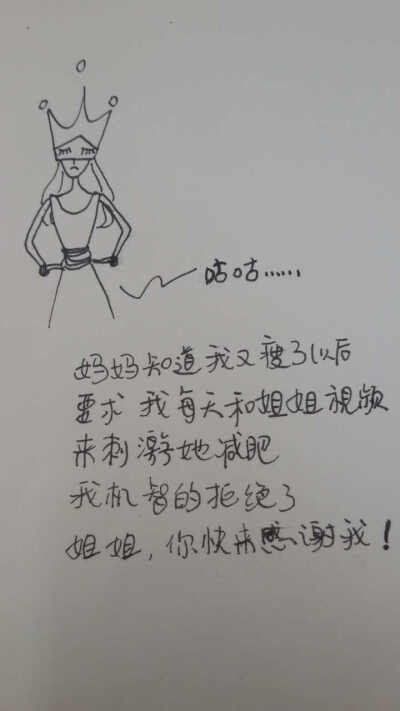 咕咕……
妈妈知道我又瘦了以后
要求我每天和姐姐视频
来刺激她减肥
我机智的拒绝了
姐姐，你快来感谢我！